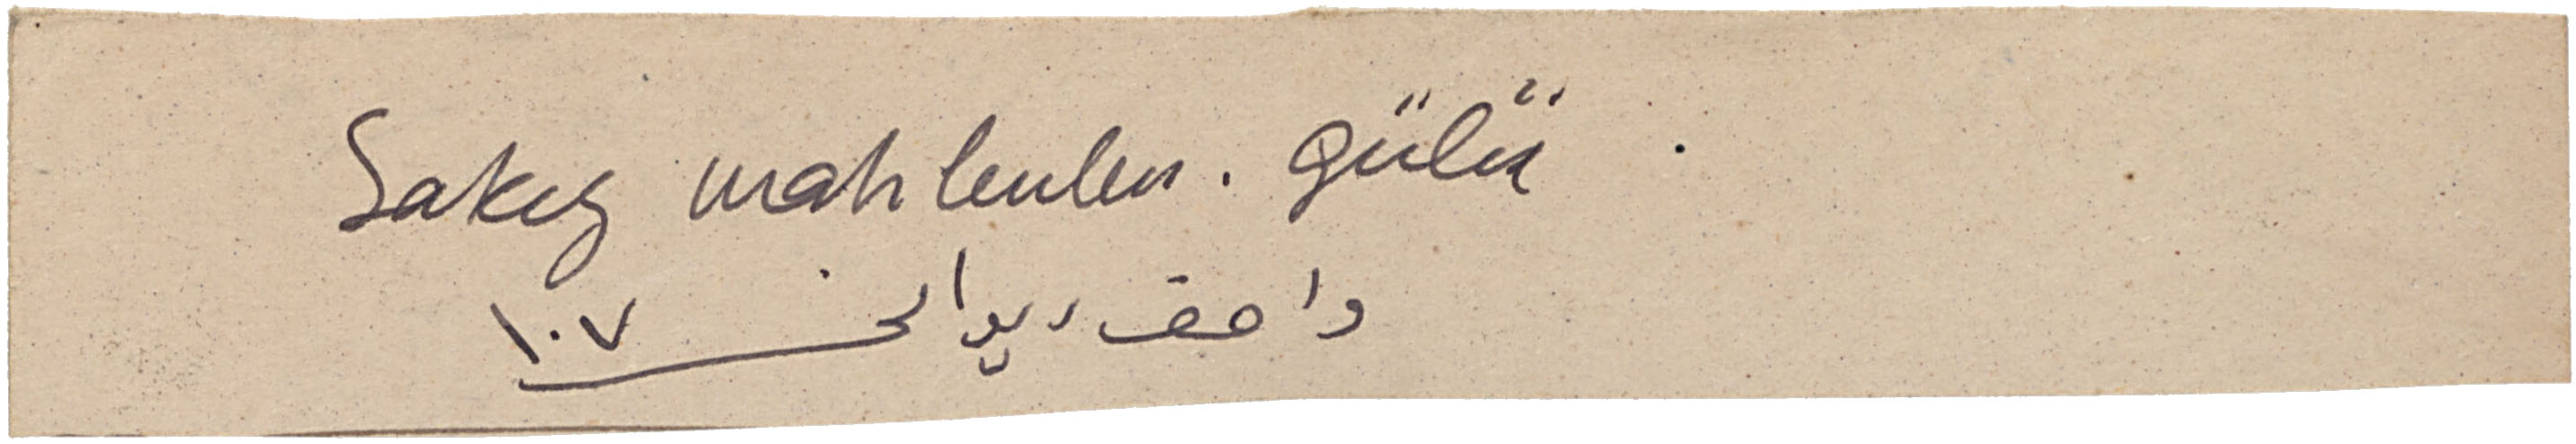 Sakız mahlenlen. gülü
واصف ديوانى ١٠٧